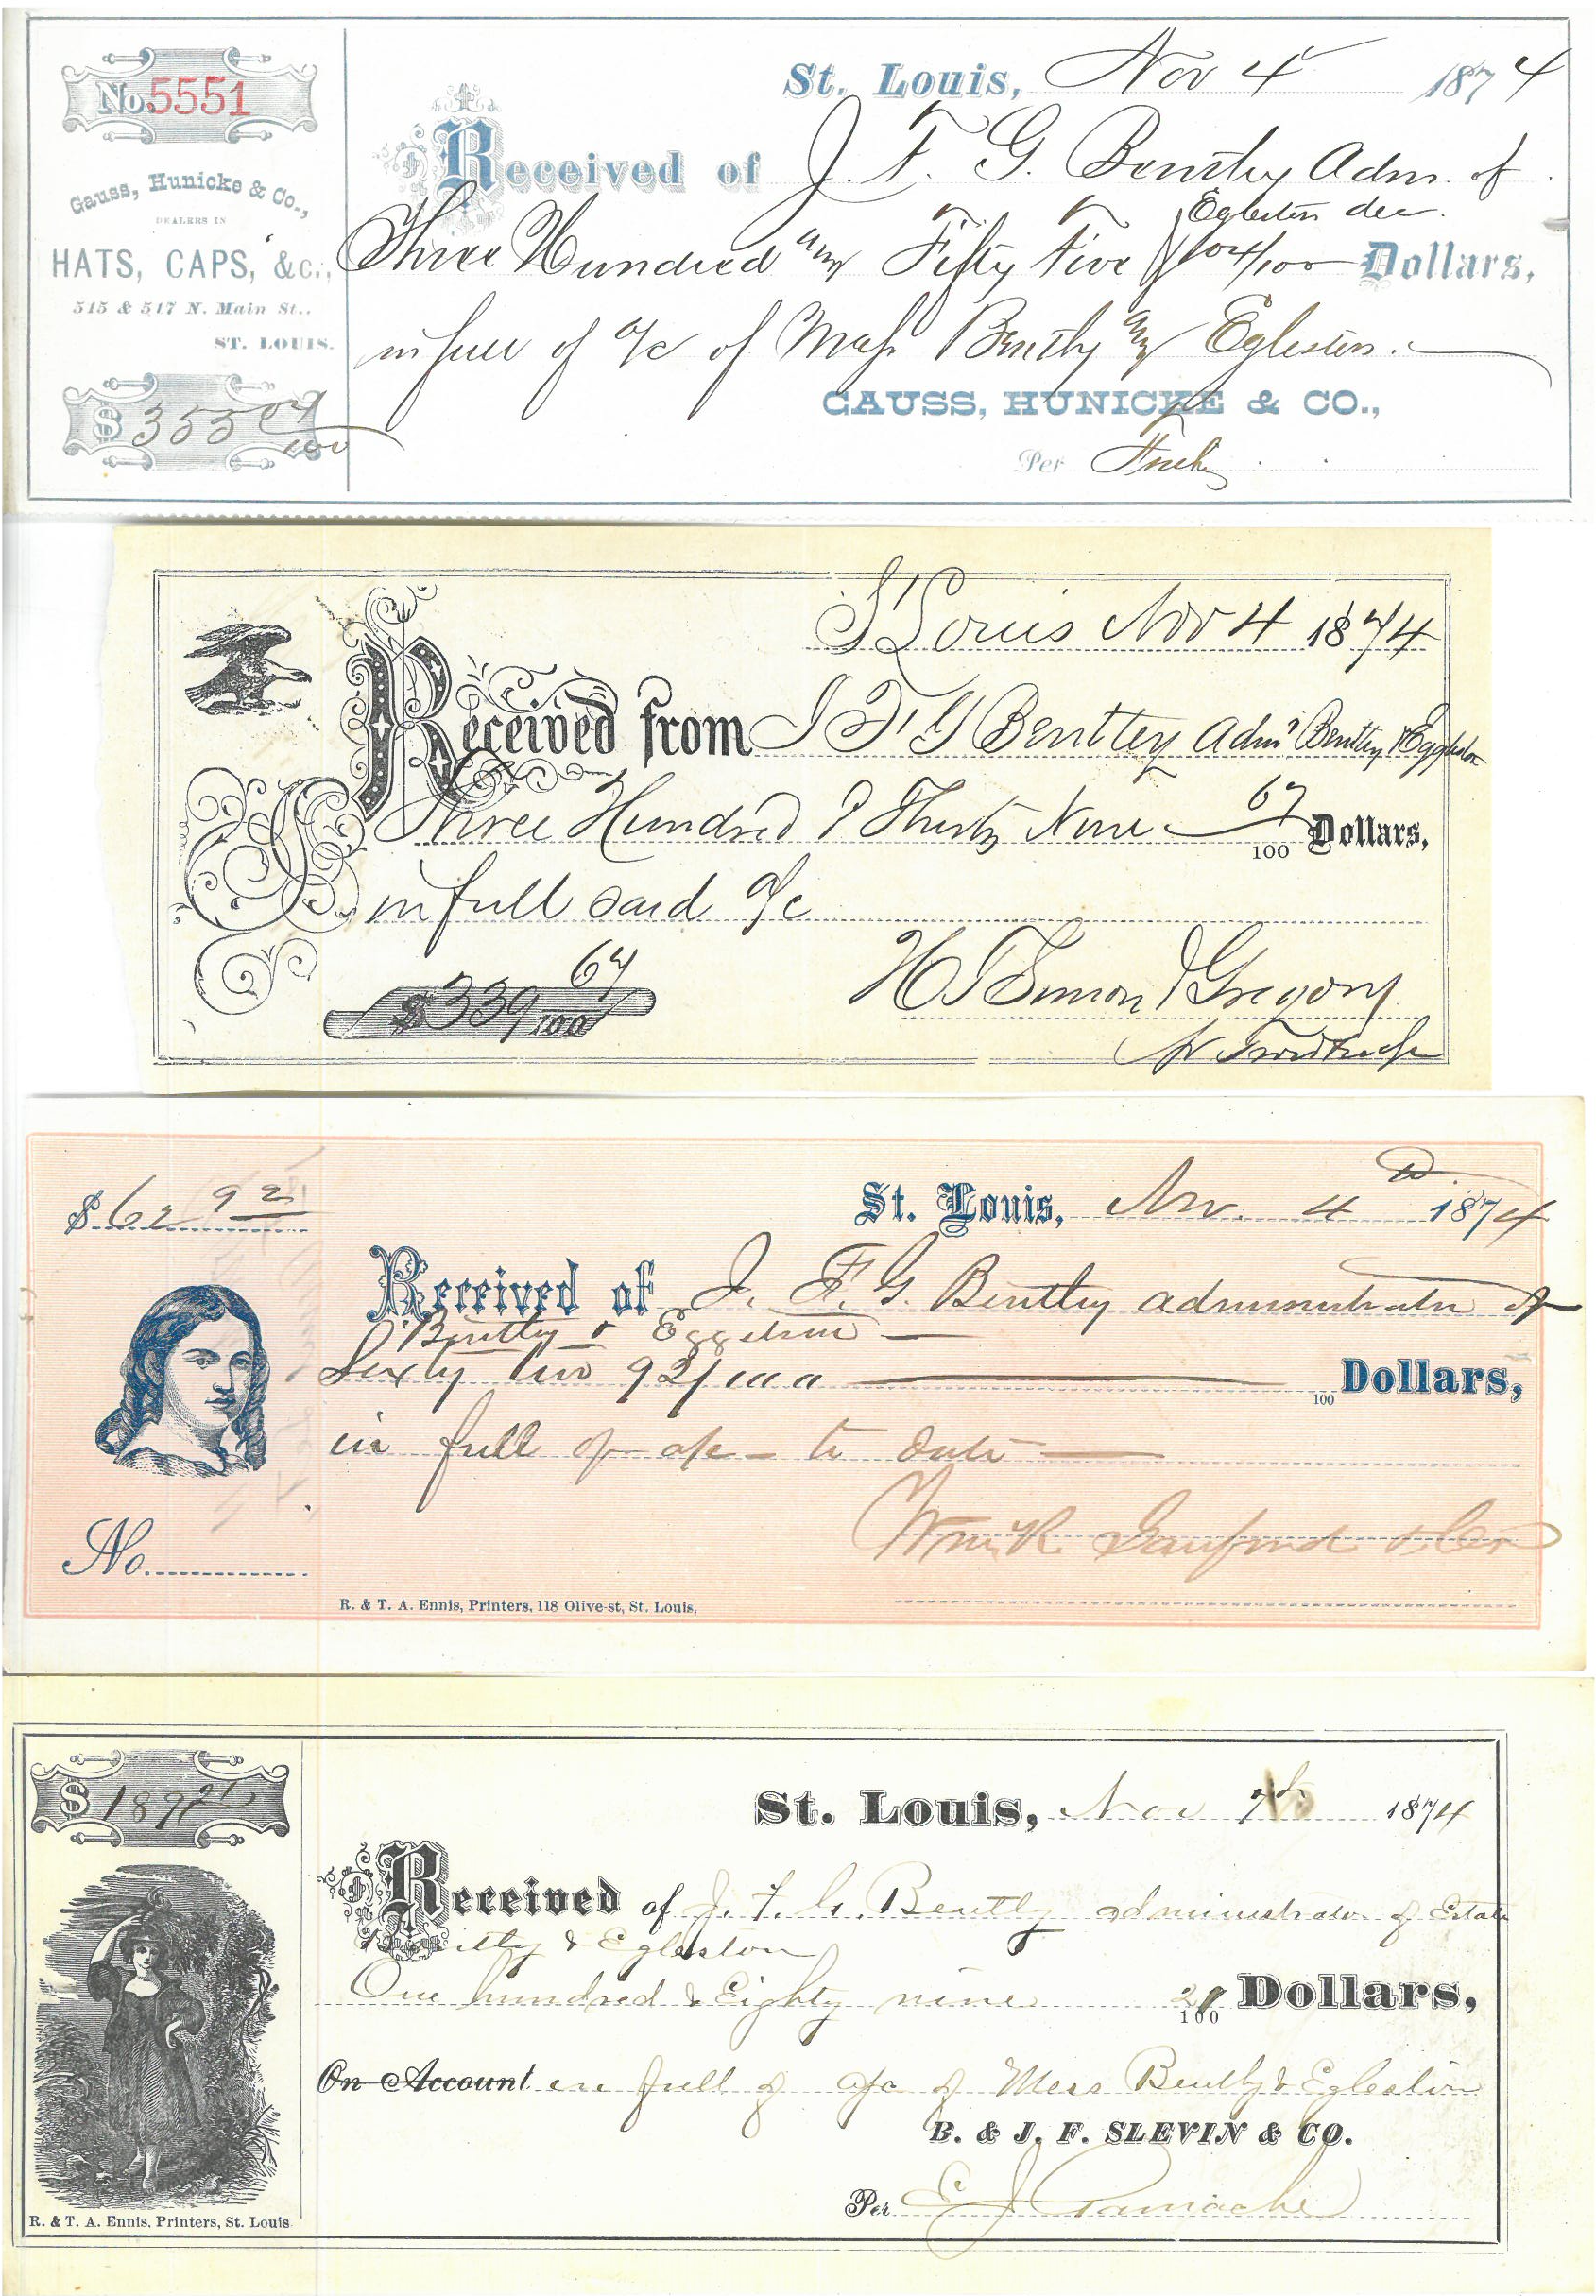 No. 5551
Gauss, Hunicke & Co.,
DEALERS IN
HATS, CAPS, &c.,
515 & 517 N. Main St.,
ST. LOUIS.
$ 355 04/100
St. Louis, Nov 4 1874
Received of J. F. G. Bentley Adm. of
Egleston dec.
Three Hundred and Fifty Five 04/100 Dollars,
in full of a/c of Mess Bently and Egleston.
GAUSS, HUNICKE & CO.,
Per
St Louis Nov 4 1874
Received from J F G Bentley Admr Bentley & Eggleston
Three Hundred & Thirty Nine 67/100 Dollars,
in full said a/c
$339 67/100
H T Simon & Gregory
St. Louis, Nov. 4 1874
$ 62 92
Received of J. F. G. Bentley administrator of
Bentley & Eggelston
Sixty two 92/100 100 Dollars,
in full of a/c to date
No.
R. & T. A. Ennis, Printers, 118 Olive-st, St. Louis,
$ 189 21
St. Louis, Nov 7th 1874
Received of J. F. G. Bently administrator of Estate
& Egleston
One hundred & Eighty nine 21/100 Dollars,
On Account in full of a/c of Mess Bently & Egleston
B. & J. F. SLEVIN & CO.
Per E J
R. & T. A. Ennis, Printers, St. Louis